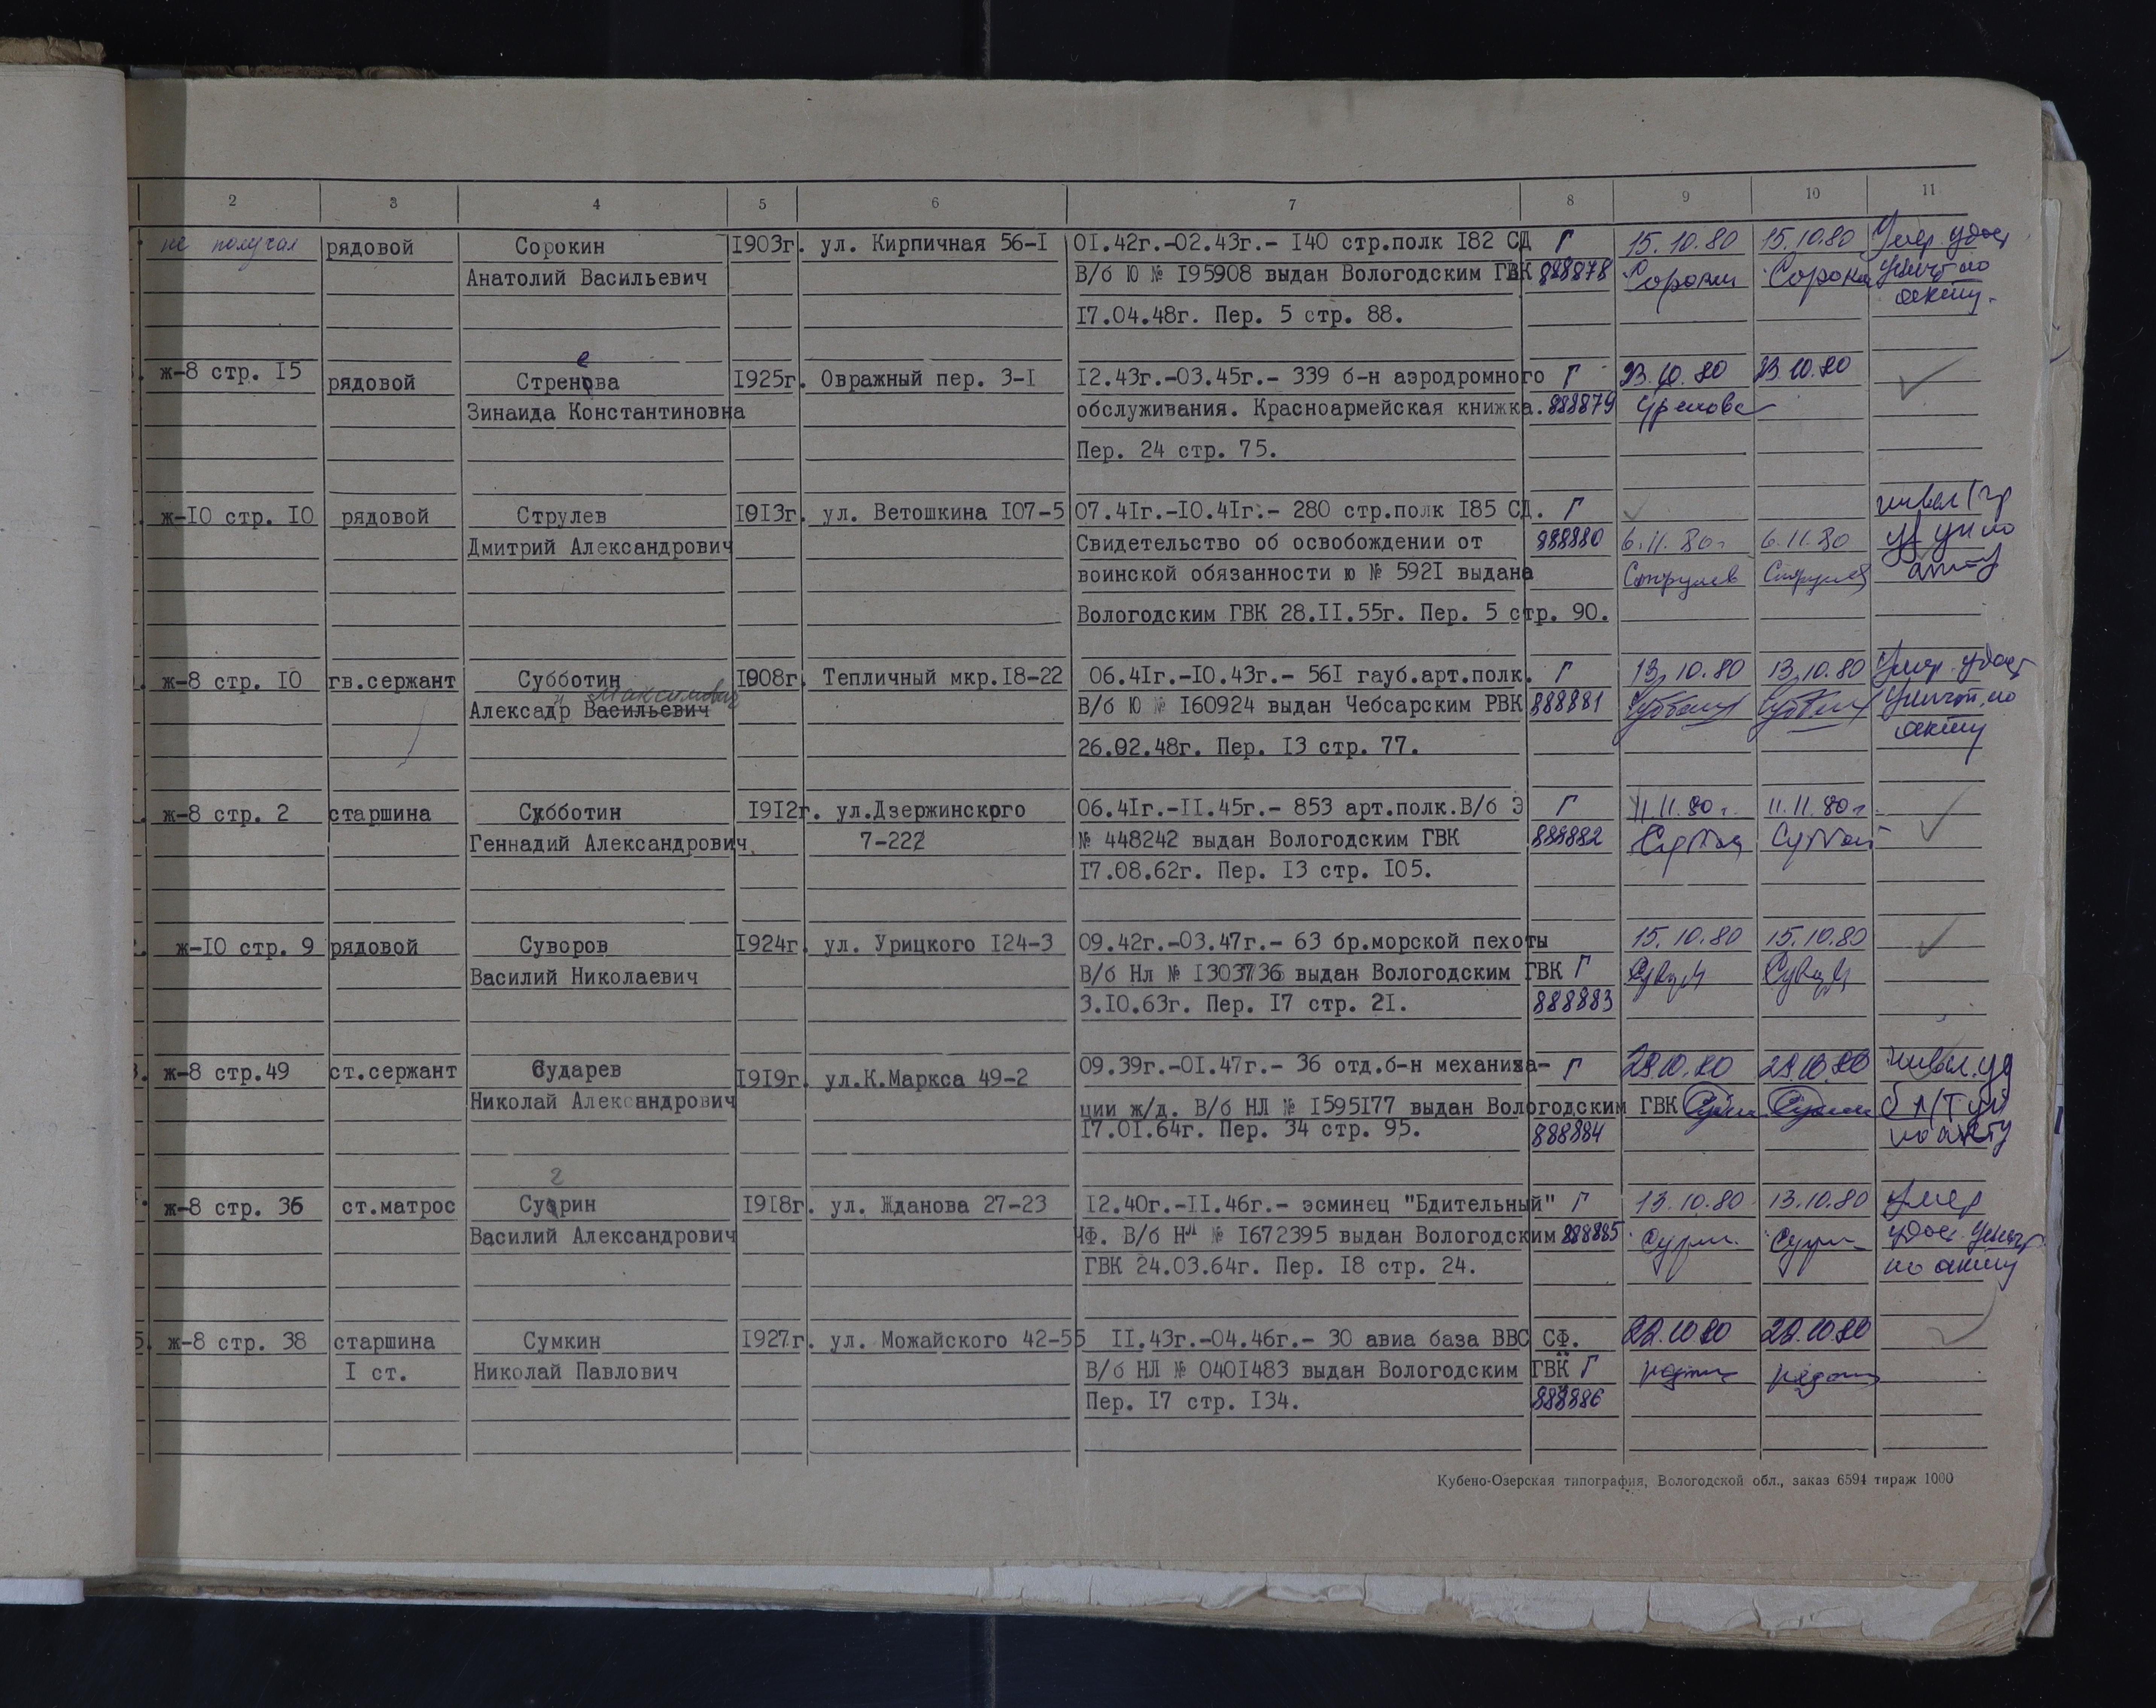 2 3 4 5 6 7 8 9 10 11
не получал рядовой Сорокин 1903г. ул. Кирпичная 56-I 01.42г.-02.43г.- I40 стр.полк I82 СД Г 15.10.80 15.10.80 Умер. удост
Анатолий Васильевич В/б Ю № I95908 выдан Вологодским ГВК 888878 Сорокин Сорокин уничт по
I7.04.48г. Пер. 5 стр. 88. акту.
е
ж-8 стр. I5 рядовой Стренова I925г. Овражный пер. 3-I I2.43г.-03.45г.- 339 б-н аэродромного Г 23.10.80 23.10.80
Зинаида Константиновна обслуживания. Красноармейская книжка. 888879
Пер. 24 стр. 75.
ж-I0 стр. I0 рядовой Струлев I9I3г. ул. Ветошкина I07-5 07.4Iг.-I0.4Iг.- 280 стр.полк I85 СД. Г
Дмитрий Александрович Свидетельство об освобождении от 888880 6.11.80г 6.11.80
воинской обязанности ю № 592I выдана Струлев Струлев
Вологодским ГВК 28.II.55г. Пер. 5 стр. 90.
ж-8 стр. I0 гв.сержант Субботин I908г. Тепличный мкр.I8-22 06.4Iг.-I0.43г.- 56I гауб.арт.полк. Г 13.10.80 13.10.80 Умер. удост
Максимович
Алексадр Васильевич В/б Ю № I60924 выдан Чебсарским РВК 888881 уничт. по
26.02.48г. Пер. I3 стр. 77. акту
ж-8 стр. 2 старшина Субботин I9I2г. ул.Дзержинского 06.4Iг.-II.45г.- 853 арт.полк.В/б Э Г 11.11.80г. 11.11.80г.
Геннадий Александрович 7-222 № 448242 выдан Вологодским ГВК 888882
I7.08.62г. Пер. I3 стр. I05.
ж-I0 стр. 9 рядовой Суворов I924г. ул. Урицкого I24-3 09.42г.-03.47г.- 63 бр.морской пехоты 15.10.80 15.10.80
Василий Николаевич В/б Нл № I303736 выдан Вологодским ГВК Г
3.I0.63г. Пер. I7 стр. 2I. 888883
ж-8 стр.49 ст.сержант Сударев I9I9г. ул.К.Маркса 49-2 09.39г.-0I.47г.- 36 отд.б-н механиза- Г 29.10.80 29.10.80
Николай Александрович ции ж/д. В/б НЛ № I595I77 выдан Вологодским ГВК
I7.0I.64г. Пер. 34 стр. 95. 888884 по акту
г
ж-8 стр. 36 ст.матрос Суррин I9I8г. ул. Жданова 27-23 I2.40г.-II.46г.- эсминец "Бдительный" Г 13.10.80 13.10.80 умер
Василий Александрович ЧФ. В/б Нл № I672395 выдан Вологодским 888885 удост. уничт
ГВК 24.03.64г. Пер. I8 стр. 24. по акту
ж-8 стр. 38 старшина Сумкин I927г. ул. Можайского 42-55 II.43г.-04.46г.- 30 авиа база ВВС СФ. 22.10.80 22.10.80
I ст. Николай Павлович В/б НЛ № 040I483 выдан Вологодским ГВК Г
Пер. I7 стр. I34. 888886
Кубено-Озерская типография, Вологодской обл., заказ 6594 тираж 1000